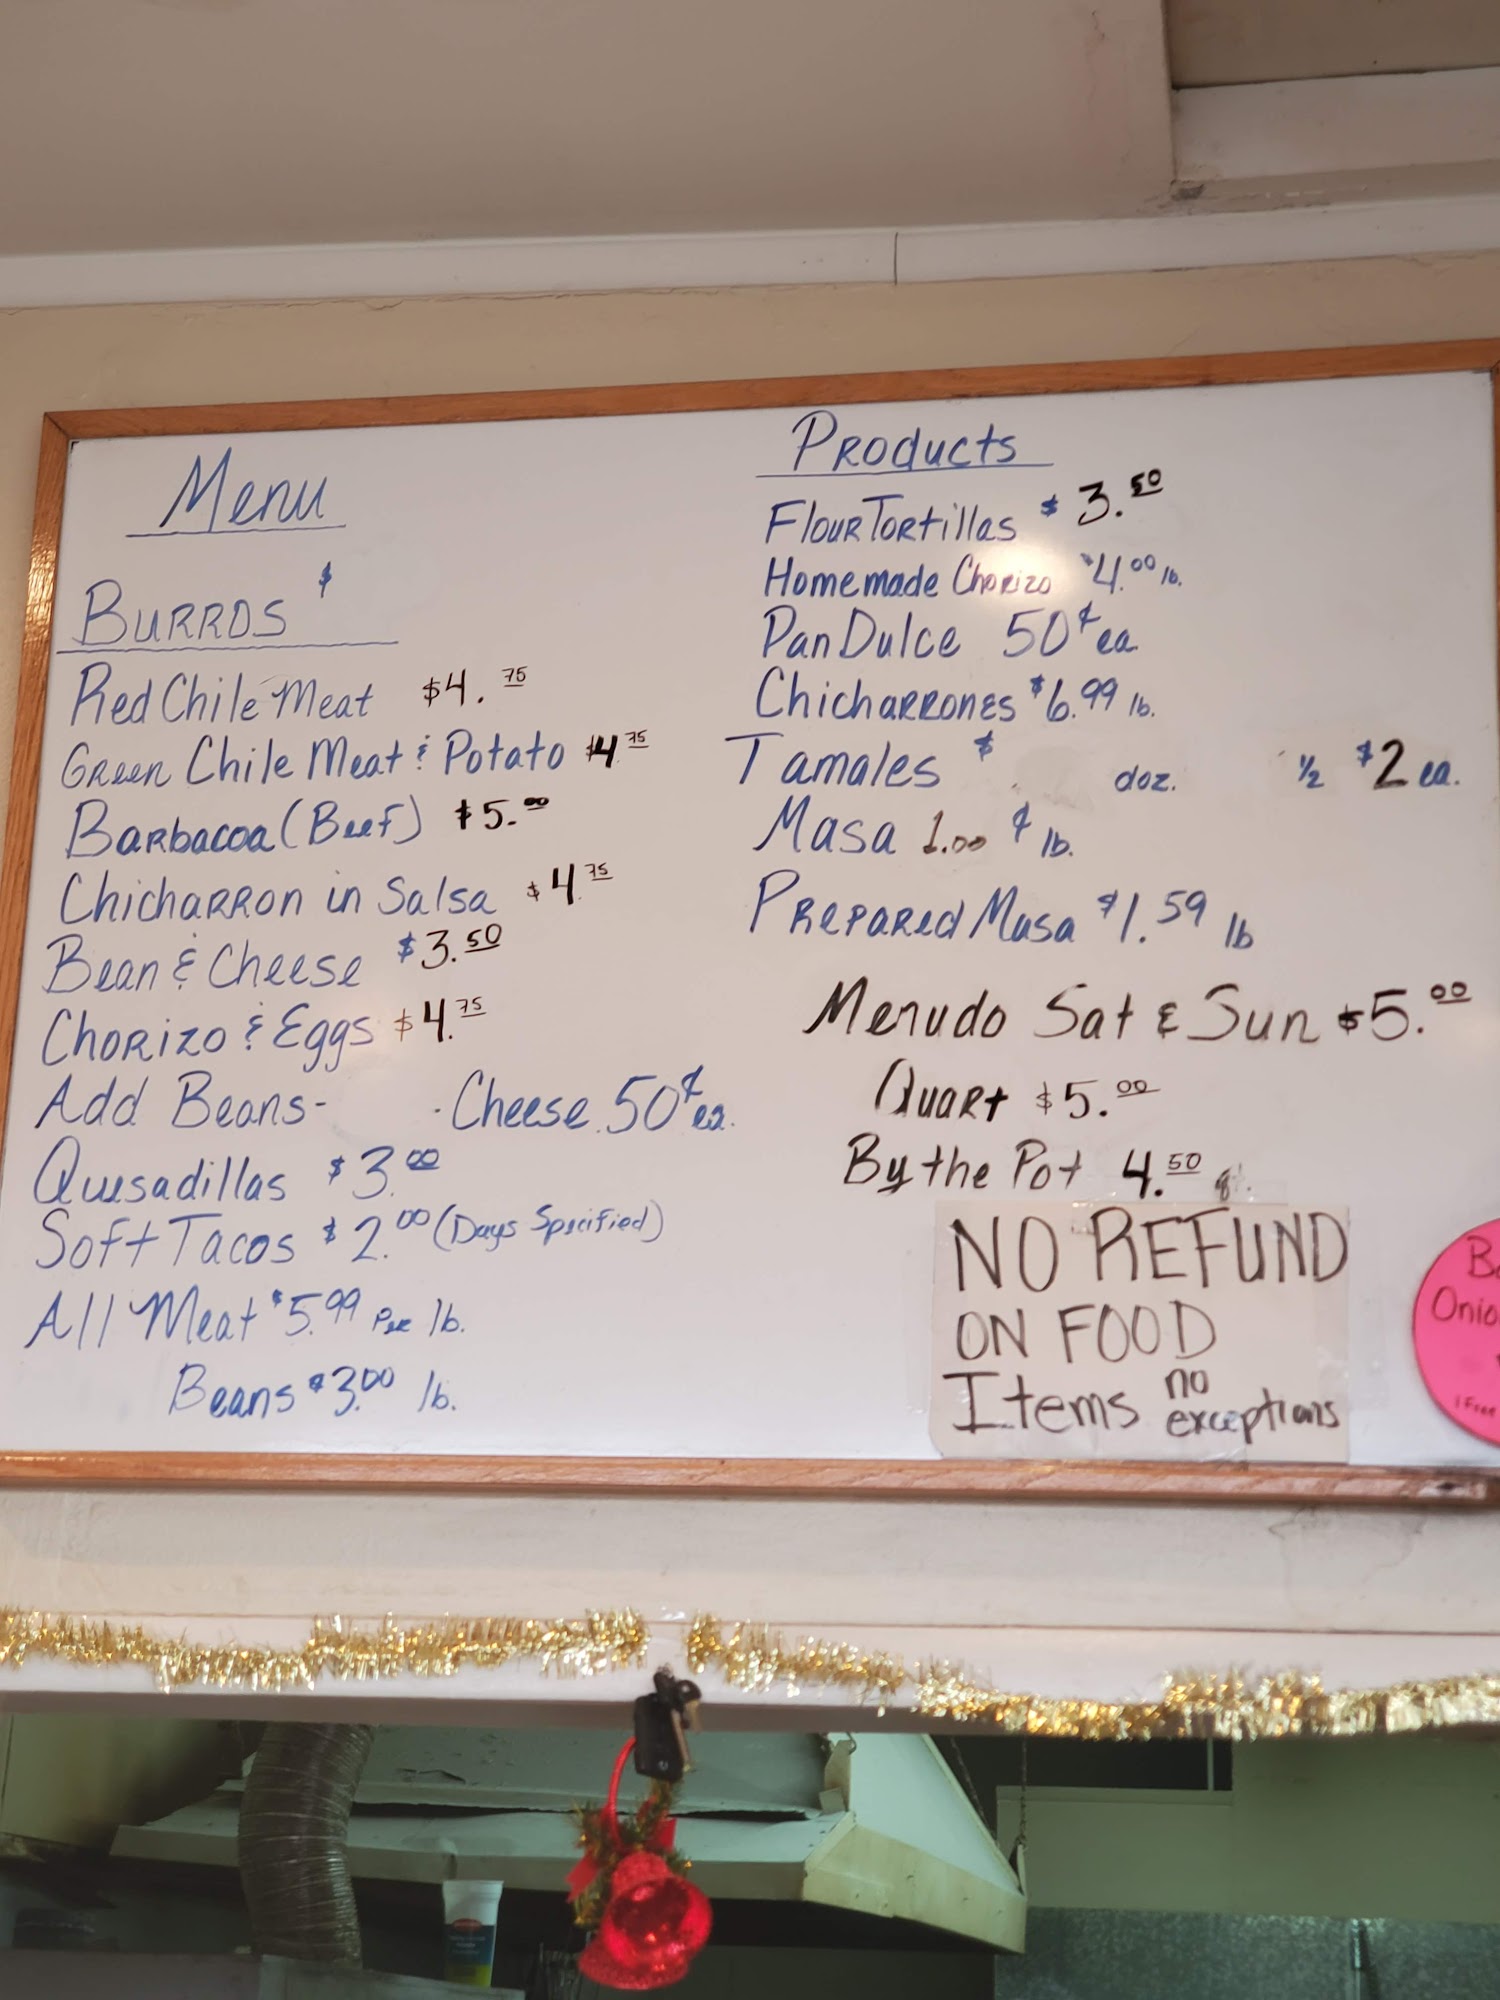 Menu
Burros $
Red Chile Meat $4.75
Green Chile Meat & Potato $4.75
Barbacoa (Beef) $5.00
Chicharron in Salsa $4.75
Bean & Cheese $3.50
Chorizo & Eggs $4.75
Add Beans- - Cheese 50¢ ea.
Quesadillas $3.00
Soft Tacos $2.00 (Days Specified)
All Meat $5.99 Per lb.
Beans $3.00 lb.
Products
Flour Tortillas $3.50
Homemade Chorizo $4.00 lb.
Pan Dulce 50¢ ea
Chicharrones $6.99 lb.
Tamales $ doz. 1/2 $2 ea.
Masa 1.00 ¢ lb.
Prepared Masa $1.59 lb
Menudo Sat & Sun $5.00
Quart $5.00
By the Pot 4.50 qt.
NO REFUND
ON FOOD
Items no exceptions
Onio
1 Free